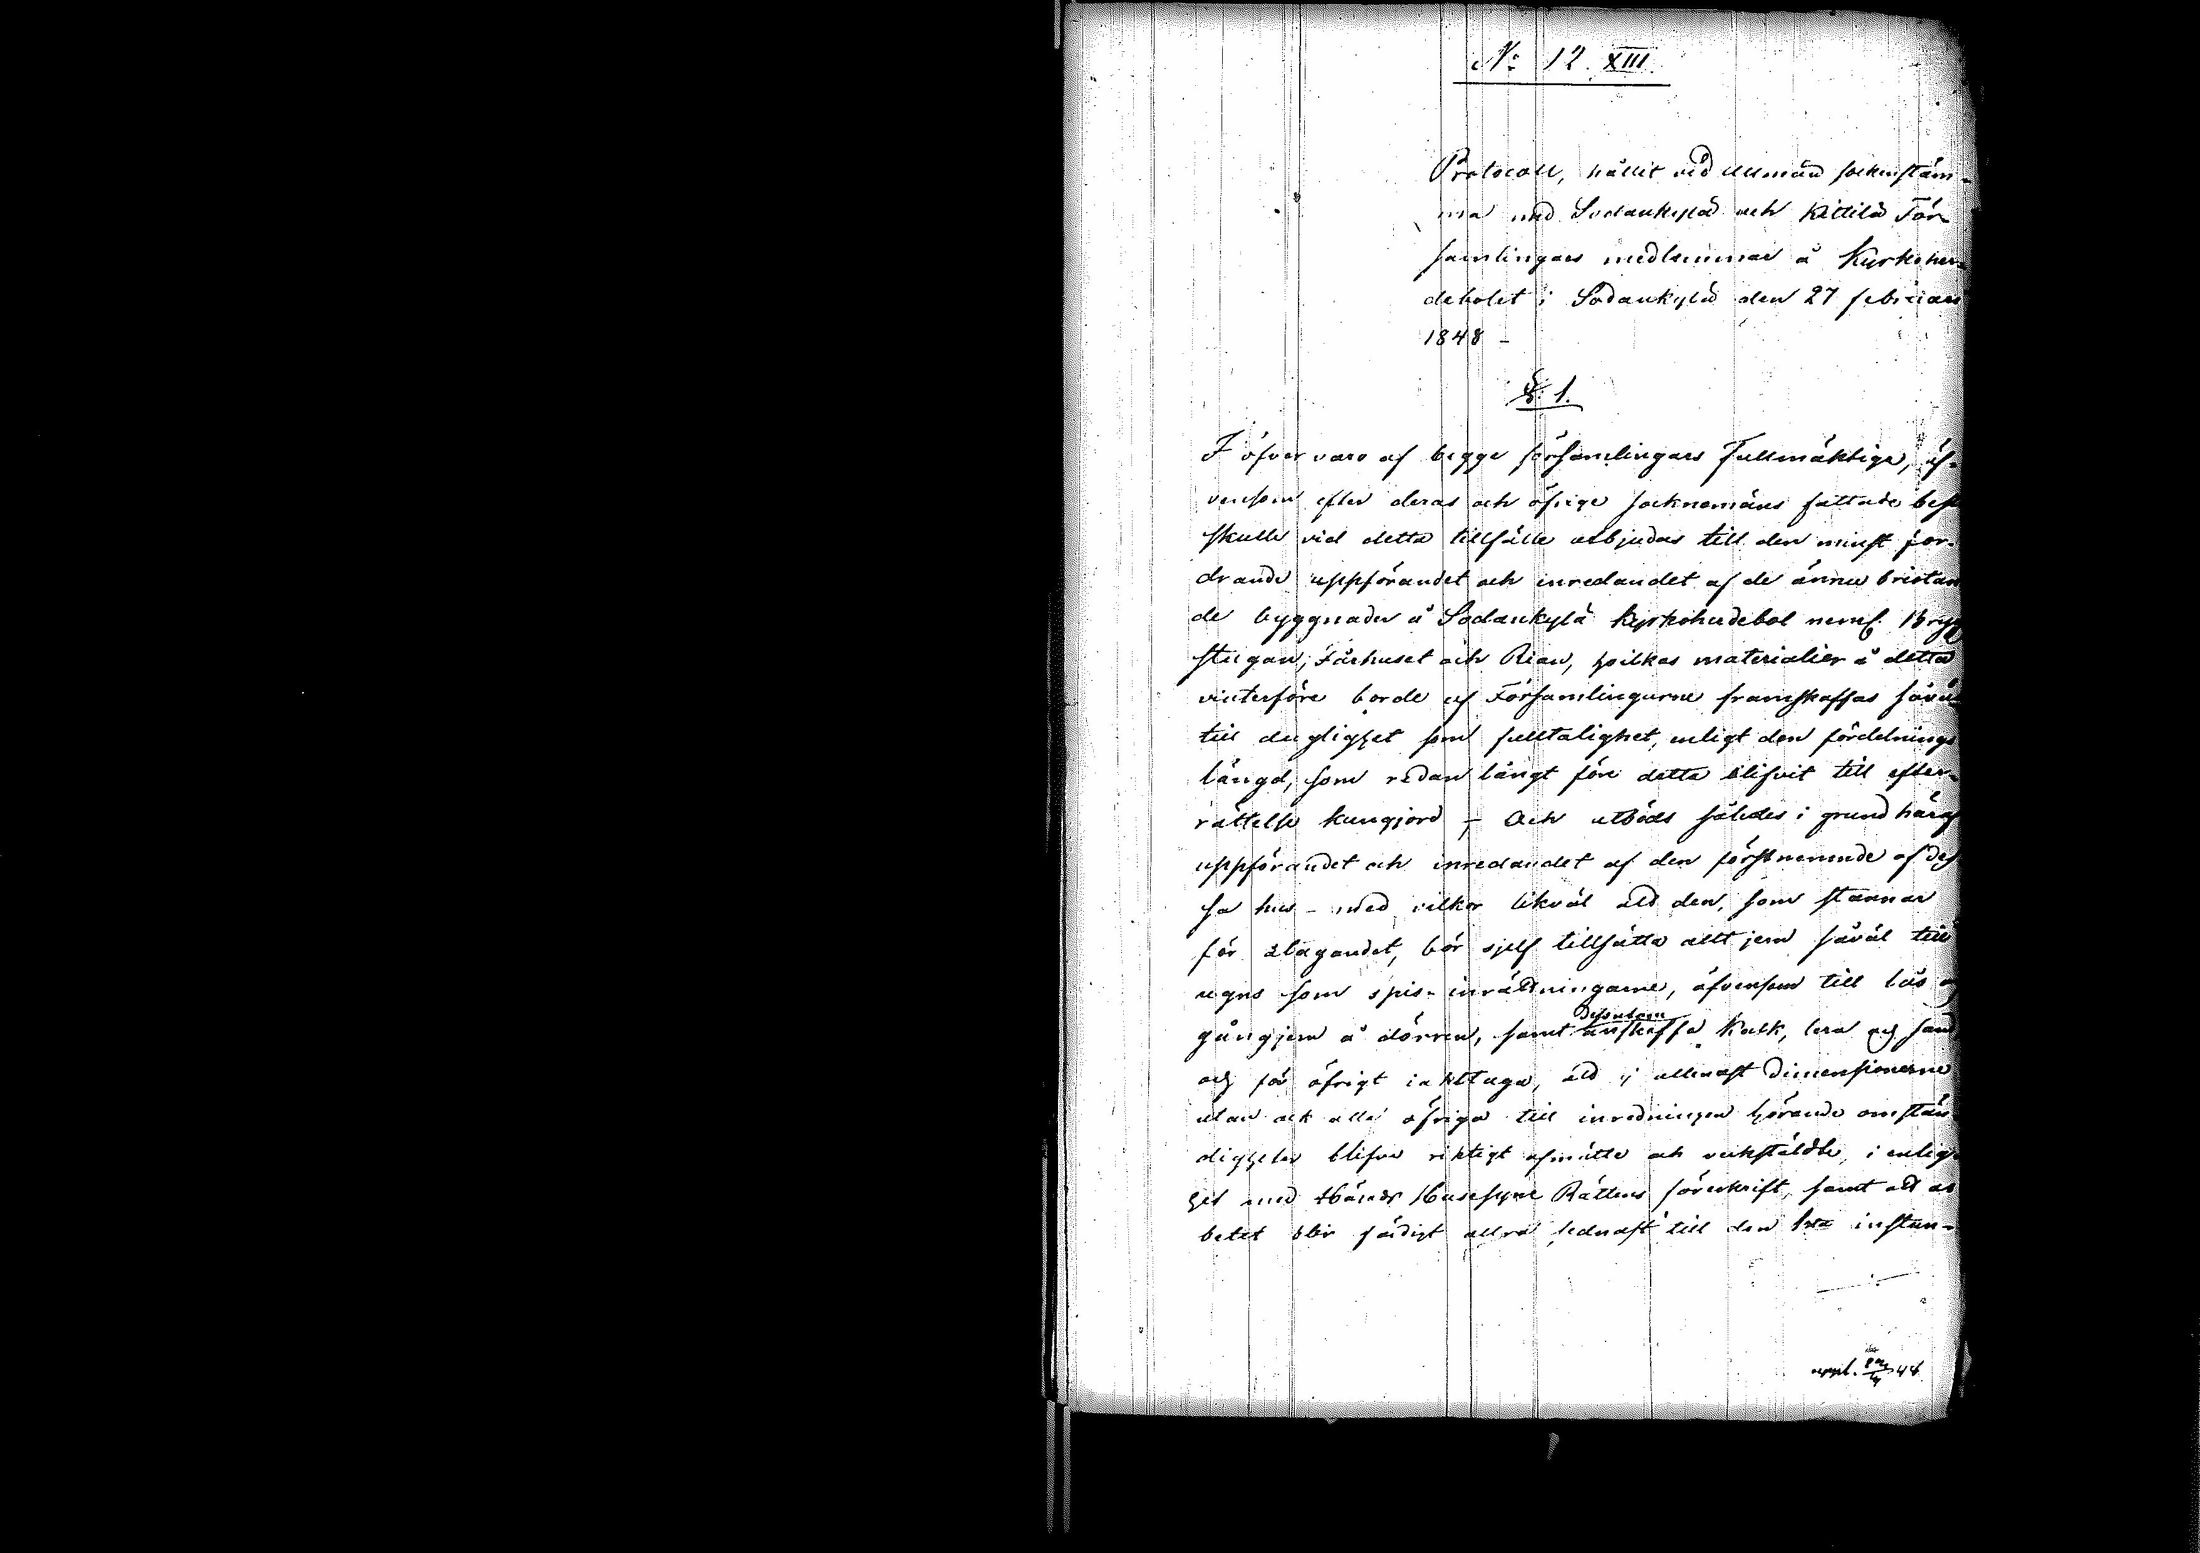 No 12. XIII.
Protocoll, hållit vid allmän sockenstäm-
ma med Sodankylä och Kittilä För-
samlingars medlemmar å Kyrkoher-
debolet i Sodankylä den 27 februarii
1848 –
§. 1.
I öfvervaro af begge församlingars Fullmäktige, äf-
vensom efter deras och öfrige socknemäns fattade
skulle vid detta tillfälle utbjudas till den minst for-
drande uppförandet och inredandet af de ännu bristan
de byggnader å Sodankylä Kyrkoherdebol nemf. Bryg
stugan, Fårhuset och Rian, hvilkas materialier å detta
vinterföre borde af Församlingarne framskaffas såväl
till duglighet som fulltalighet, enligt den fördelnings
längd, som redan långt före detta blifvit till efter-
rättelse kungjord – Och utböds således i grund häraf
uppförandet och inredandet af den förstnemnde af des
sa hus – med vilkor likväl att den, som stannar
för åtagandet, bör sjelf tillsätta allt jern såväl till
ugns som spis-inrättningarne, äfvensom till lås o
gångjern å dörren, samt dessutom anskaffa kalk, lera och sand
och för öfrigt iakttaga, att ej allenast Dimensionerne
utan ock alla öfriga till inredningen hörande omstän
digheter blifva riktigt afmätte och verkställdte, i enlig
het med Härads Husesyns Rättens föreskrift, samt att ar
betet blir färdigt allra sednast till den 1sta instun-
48